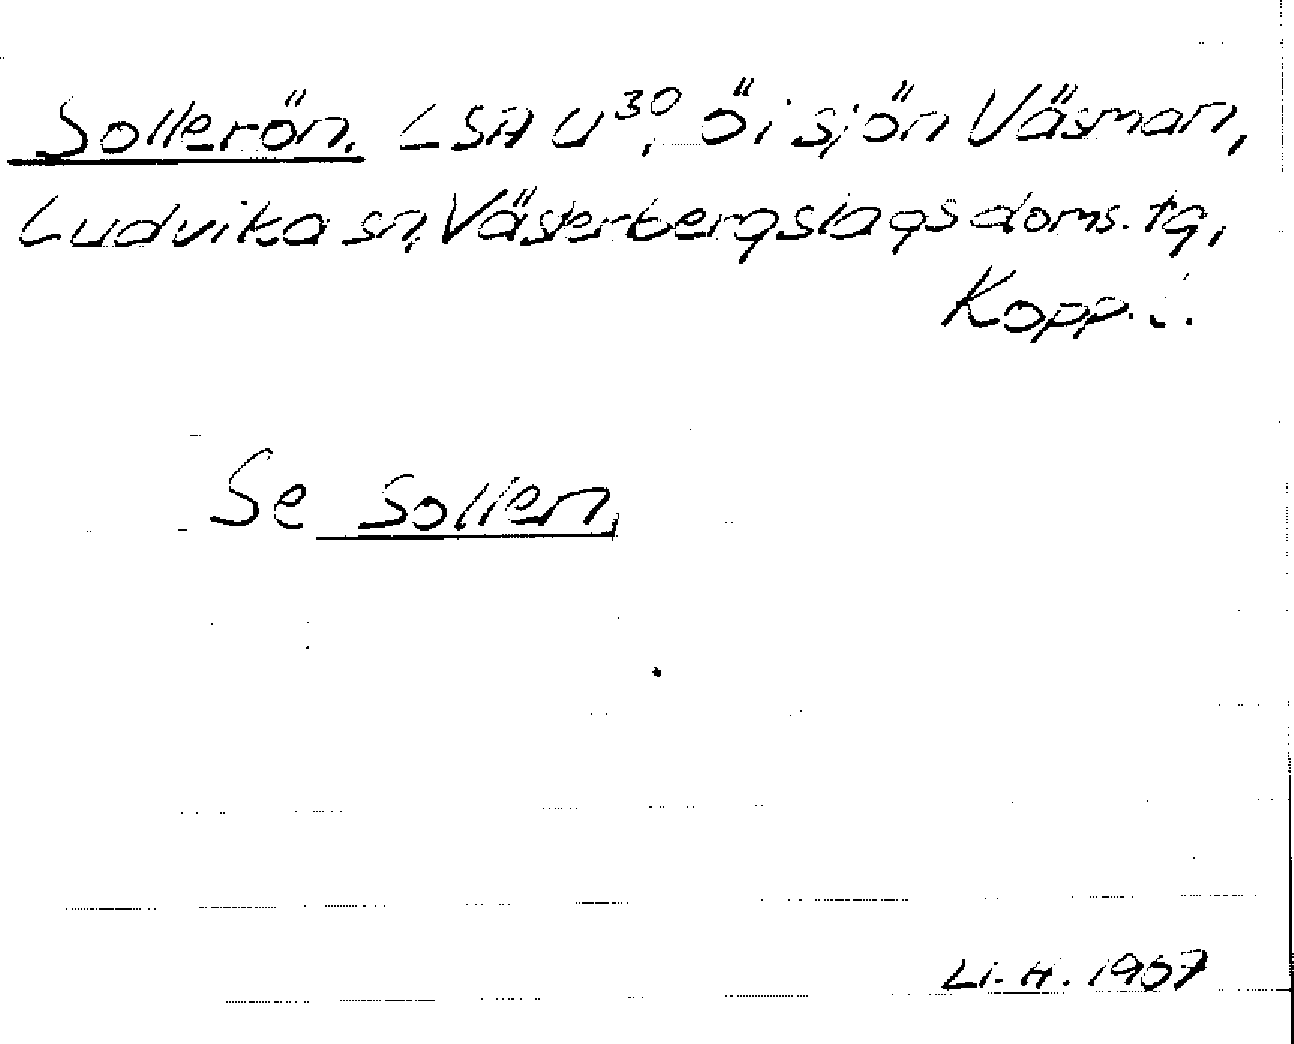 Sollerön. LSA U³⁰, ö i sjön Väsman,
Ludvika sn, Västerbergslags doms. tg,
Kopp. l.
Se Sollen,
Li. H. 1967